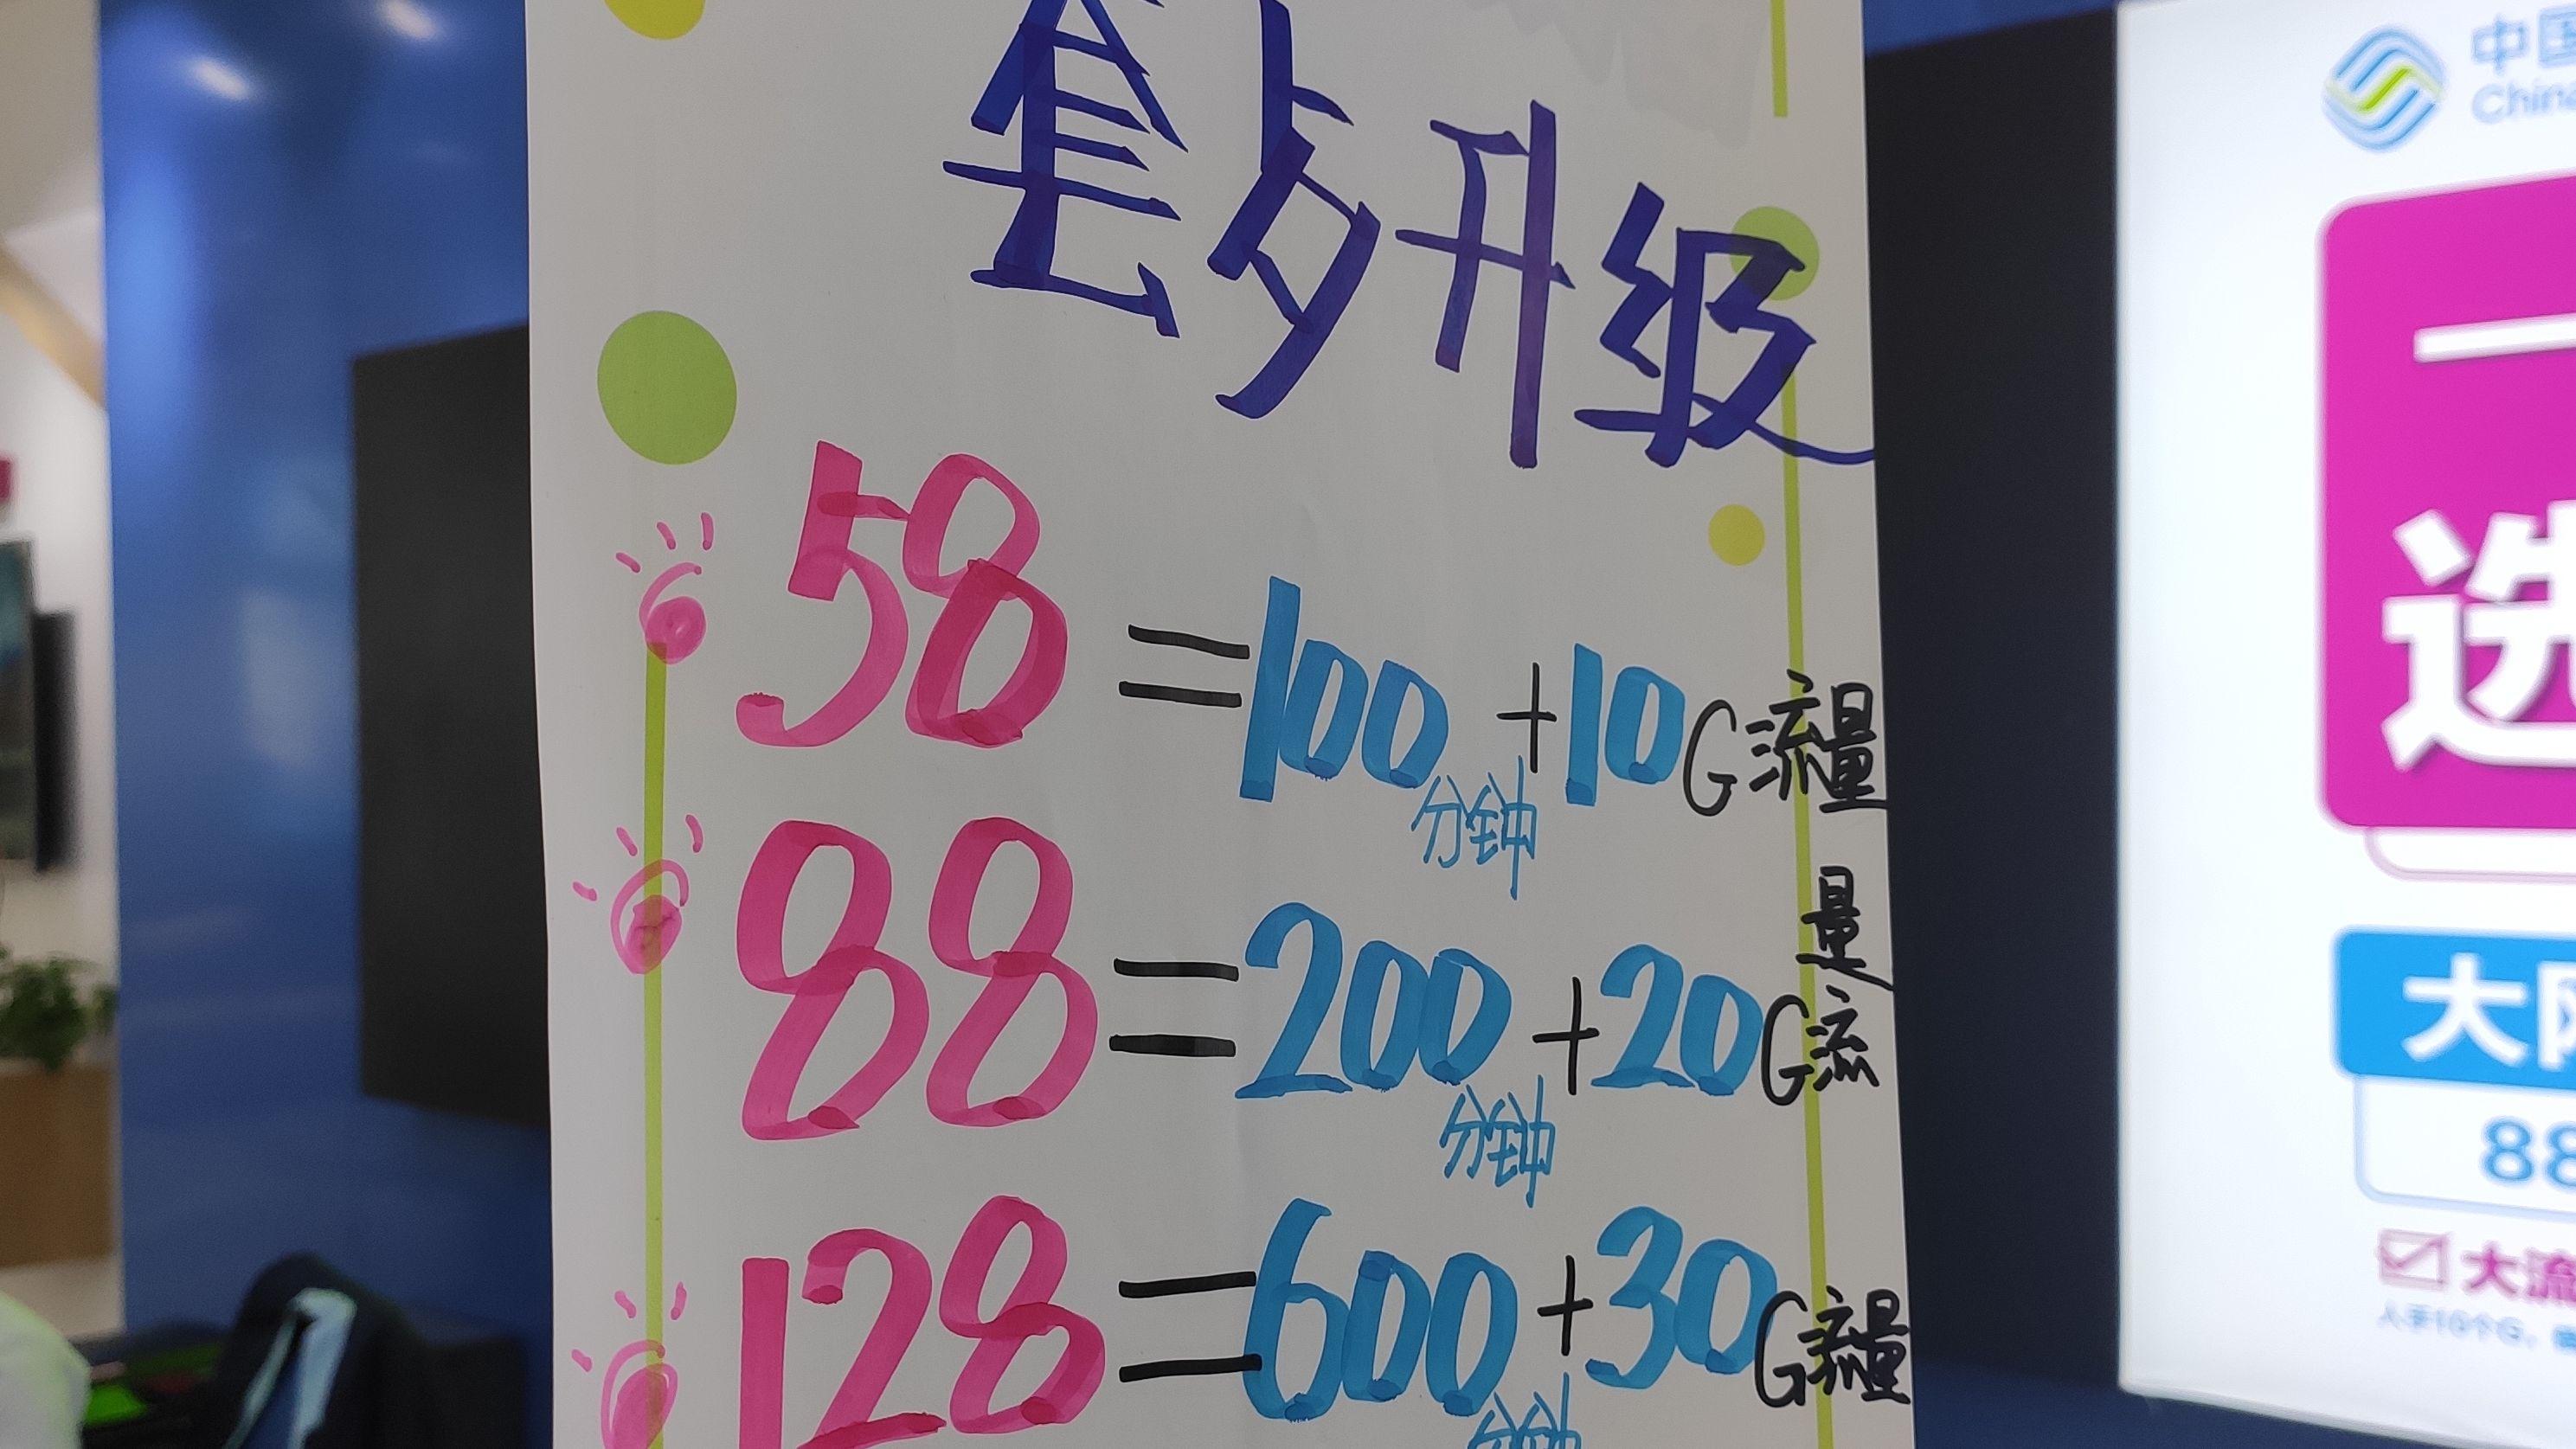 套歺升级
58=100分钟+10G流量
88=200分钟+20G流量
128=600分钟+30G流量
中国
China
一
选
大
88
大流
人手10个G,